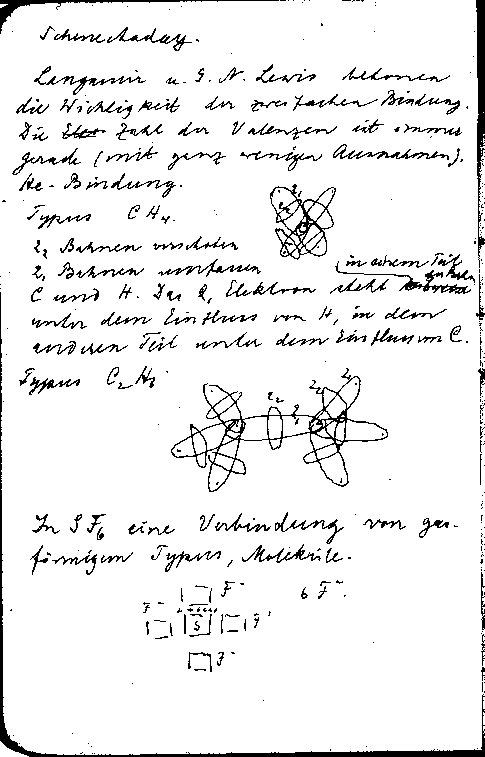 Schenectady.
Langmuir u. G. N. Lewis betonen
die Wichtigkeit der zweifachen Bindung.
Die Zahl der Valenzen ist immer
gerade (mit ganz wenigen Ausnahmen).
He-Bindung.
Typus CH₄.
2₂ Bahnen verschoben
2₁ Bahnen umfassen
in einem Teil
C und H. Das 2₁ Elektron steht
unter dem Einfluss von H, in dem
anderen Teil unter dem Einfluss von C.
2₁
2₂
Typus C₂H₆
2₂ 2₁ 2₂ 2₁
In SF₆ eine Verbindung von gas-
förmigem Typus, Moleküle.
F⁻ 6 F⁻.
F⁻
S F⁻
F⁻